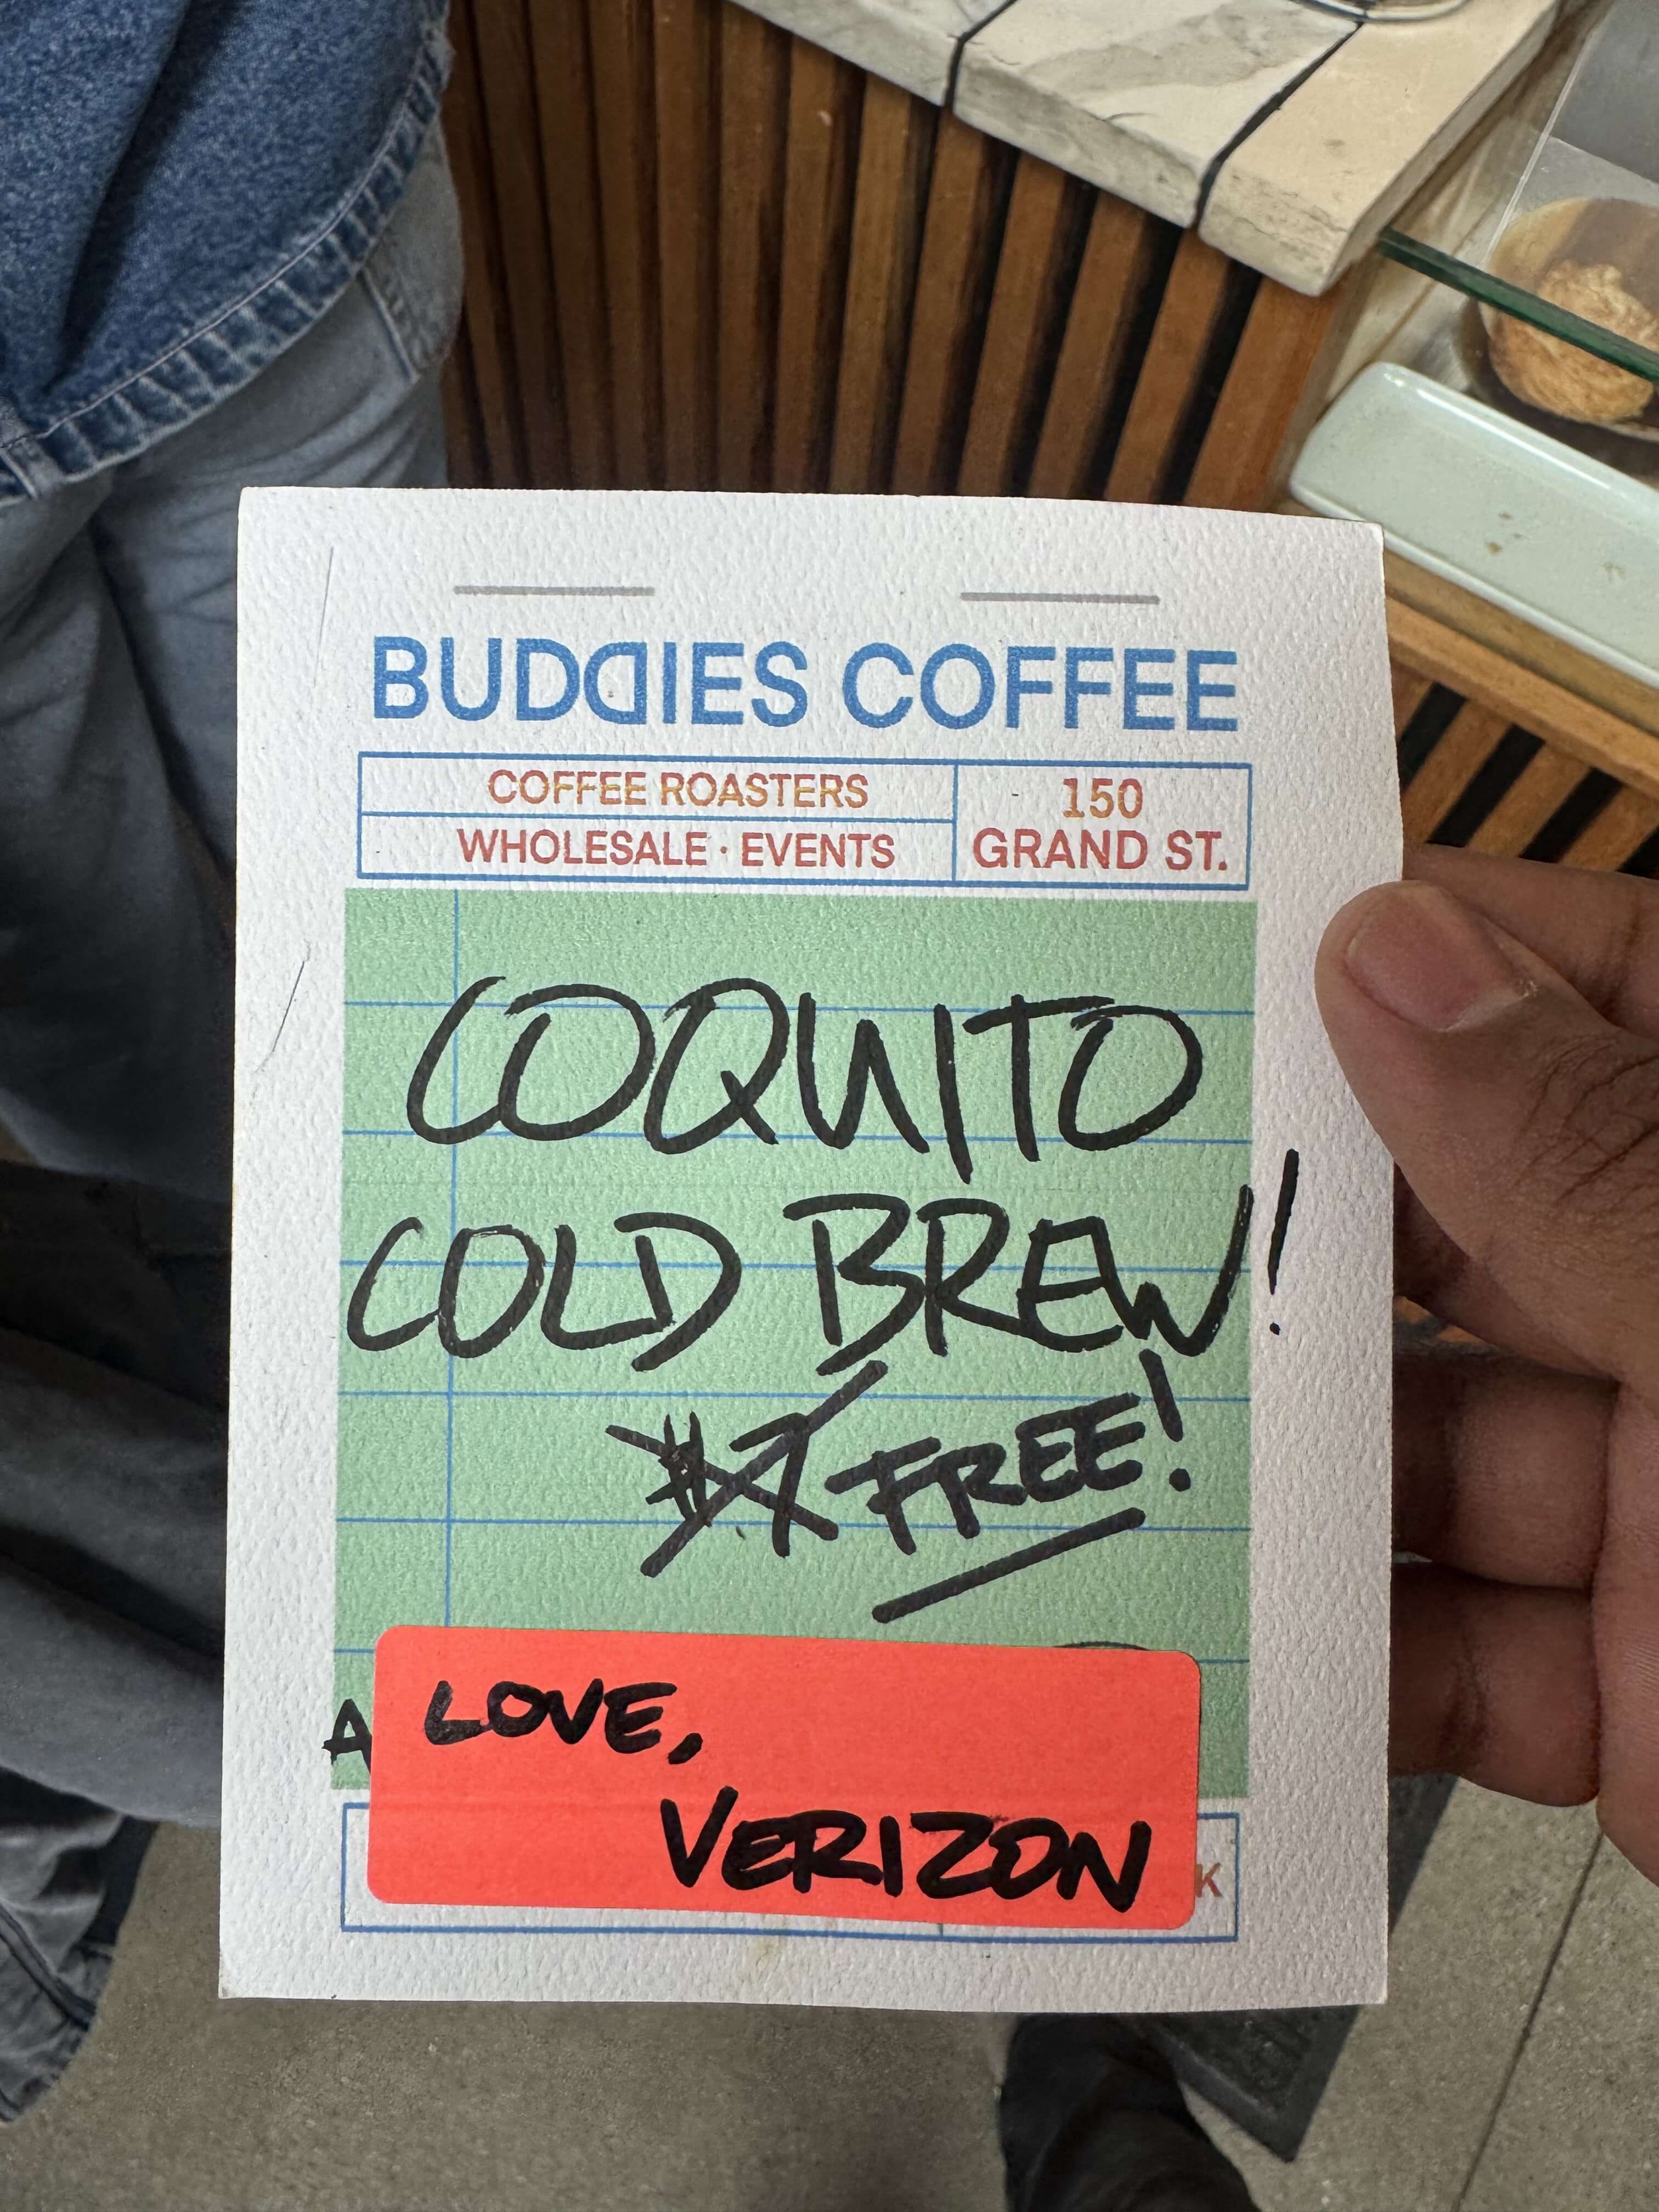 BUDDIES COFFEE
COFFEE ROASTERS
WHOLESALE · EVENTS
150
GRAND ST.
COQUITO
COLD BREW!
$7 FREE!
A
LOVE,
VERIZON
K